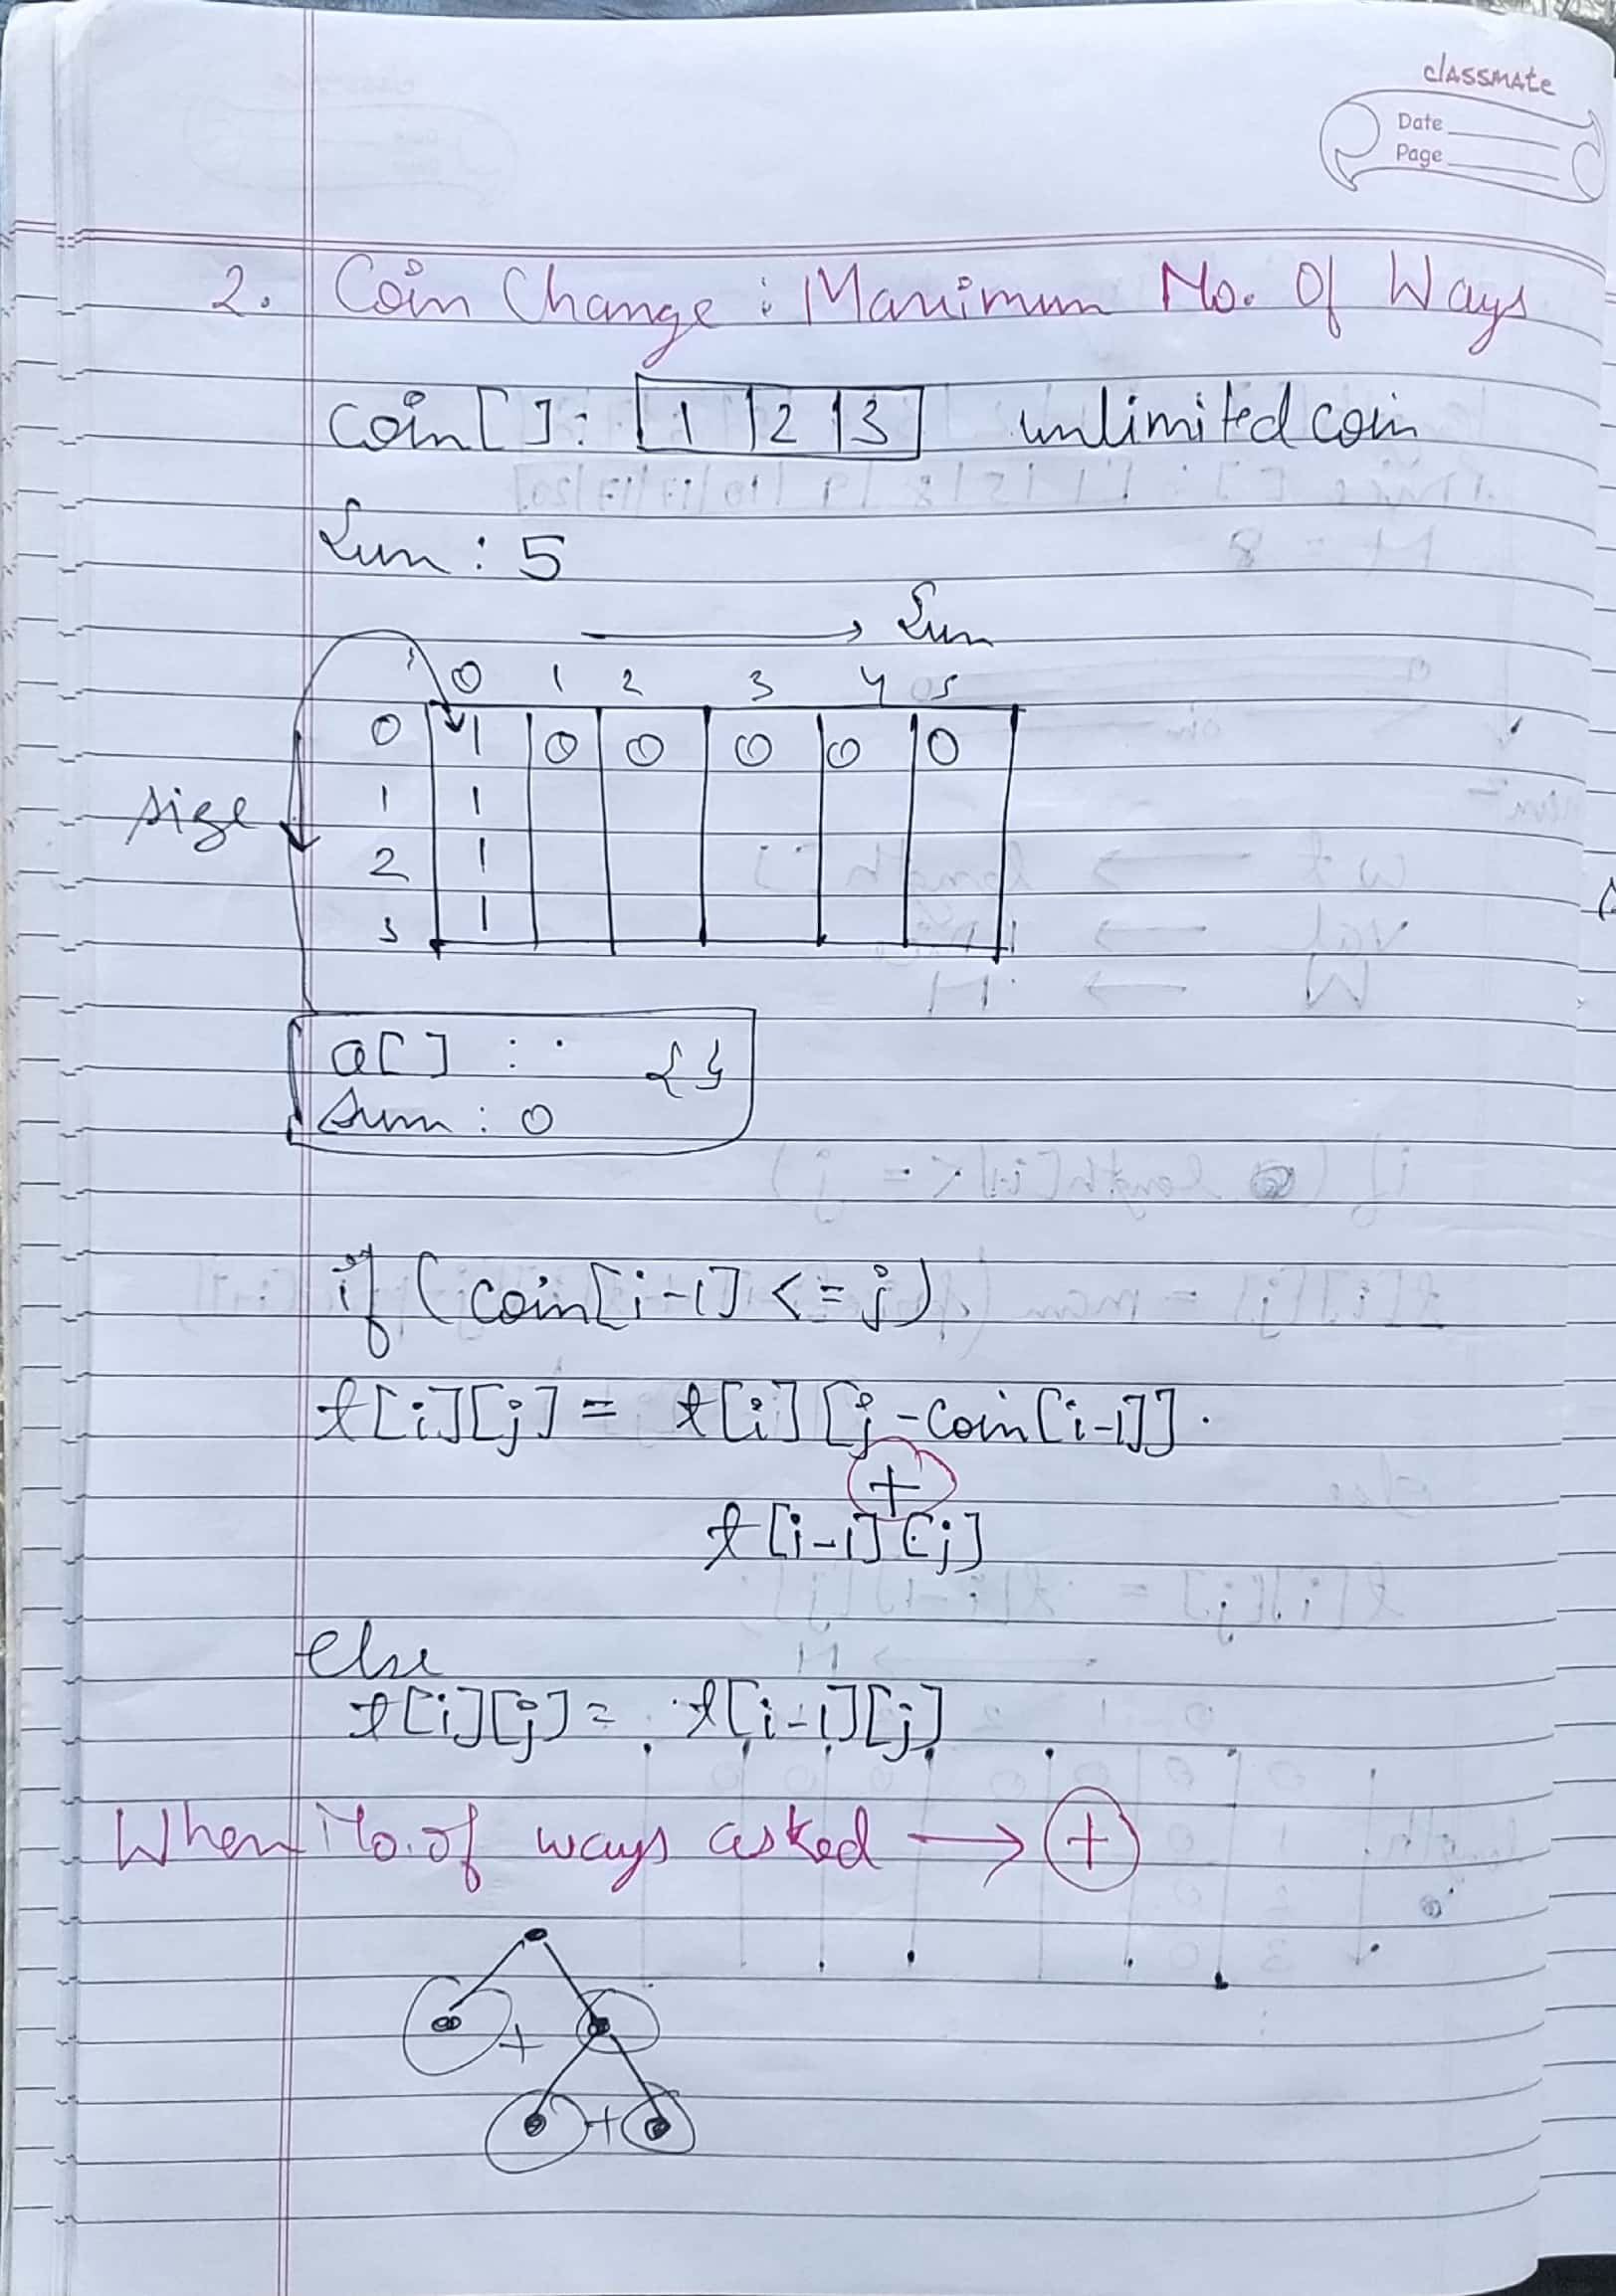 classmate
Date
Page
2. Coin Change : Maximum No. Of Ways
Coin [ ] : 1 2 3 unlimited coin
Sum : 5
→ Sum
0 1 2 3 4 5
0 1 0 0 0 0 0
size 1 1
2 1
3 1
a[ ] : {}
Sum : 0
if (coin[i-1] <= j)
t[i][j] = t[i][j-coin[i-1]].
+
t[i-1][j]
else
t[i][j] = t[i-1][j]
When No. of ways asked → +
+
+